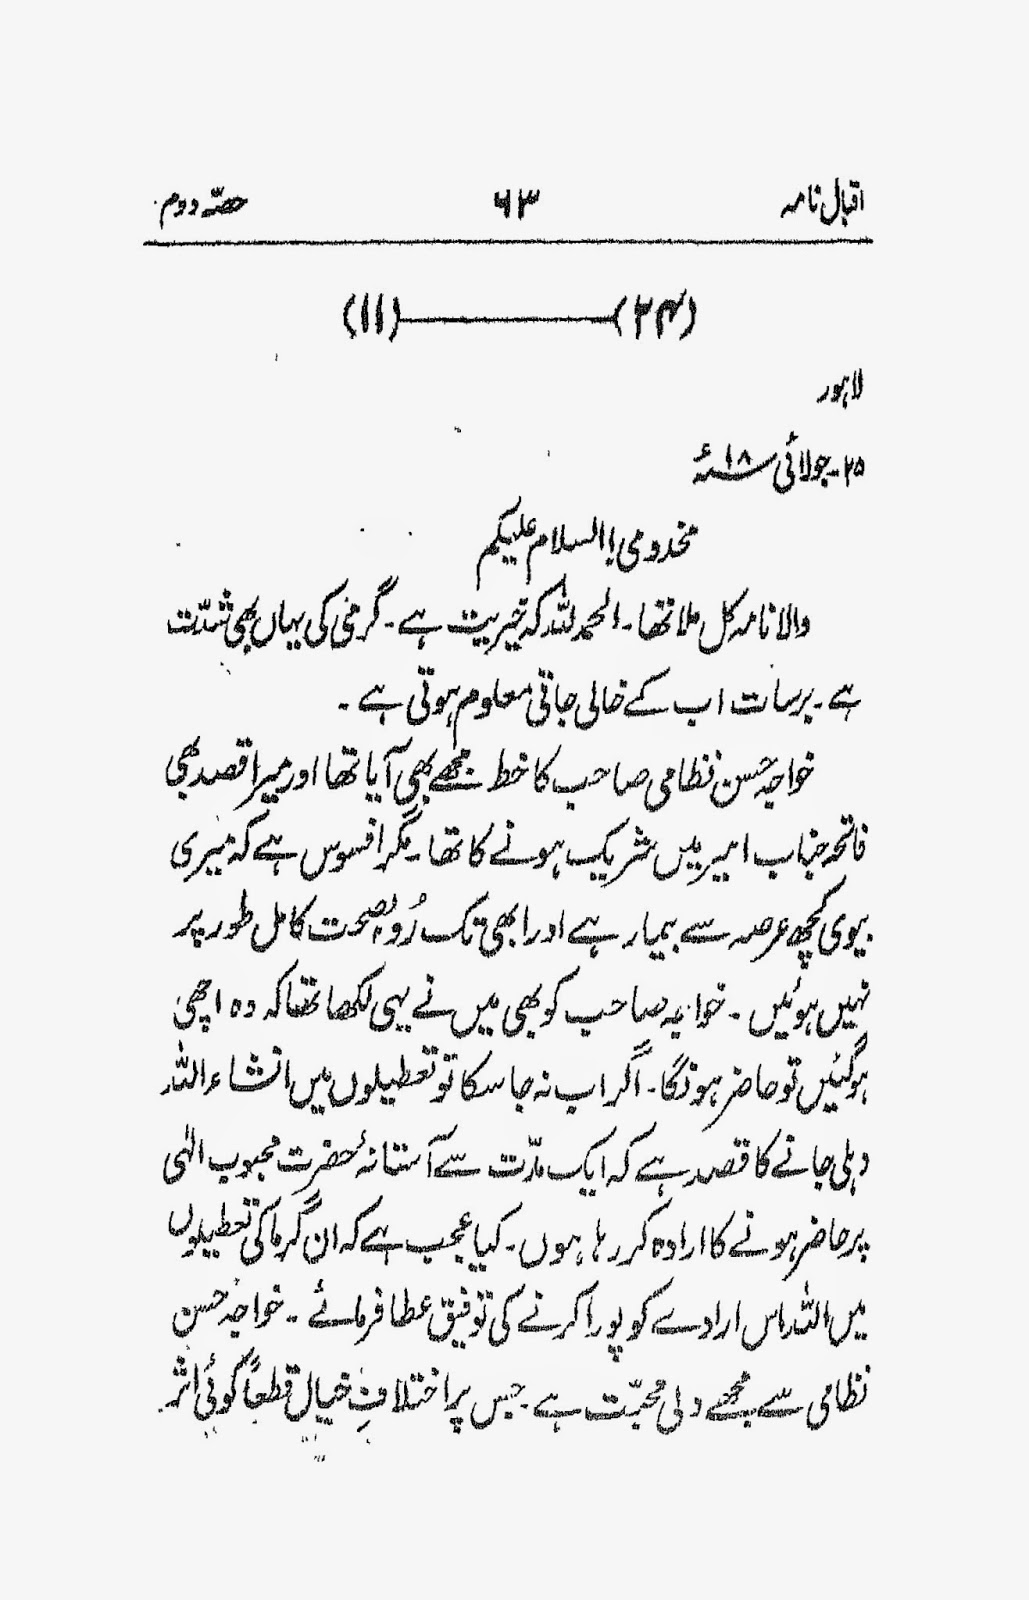 اقبال نامہ ۶۳ حصّہ دوم
(۲۴)————(۱۱)
لاہور
۲۵۔جولائی ۱۸ء
مخدومی! السلام علیکم
والا نامہ کل ملا تھا۔ الحمد للہ کہ خیریت ہے۔ گرمی کی یہاں بھی شدّت
ہے۔ برسات اب کے خالی جاتی معلوم ہوتی ہے۔
خواجہ حسن نظامی صاحب کا خط مجھے بھی آیا تھا اور میرا قصد بھی
فاتحہ جناب امیر میں شریک ہونے کا تھا۔ مگر افسوس ہے کہ میری
بیوی کچھ عرصہ سے بیمار ہے اور ابھی تک رُوبصحت کامل طور پر
نہیں ہوئیں۔ خواجہ صاحب کو بھی میں نے یہی لکھا تھا کہ وہ اچھی
ہوگئیں تو حاضر ہونگا۔ اگر اب نہ جا سکا تو تعطیلوں میں انشاء اللہ
دہلی جانے کا قصد ہے کہ ایک مدّت سے آستانۂ حضرت محبوب الٰہی
پر حاضر ہونے کا ارادہ کر رہا ہوں۔ کیا عجب ہے کہ ان گرما کی تعطیلوں
میں اللہ اس ارادے کو پورا کرنے کی توفیق عطا فرمائے۔ خواجہ حسن
نظامی سے مجھے دلی محبّت ہے۔ جس پر اختلافِ خیال قطعاً کوئی اثر